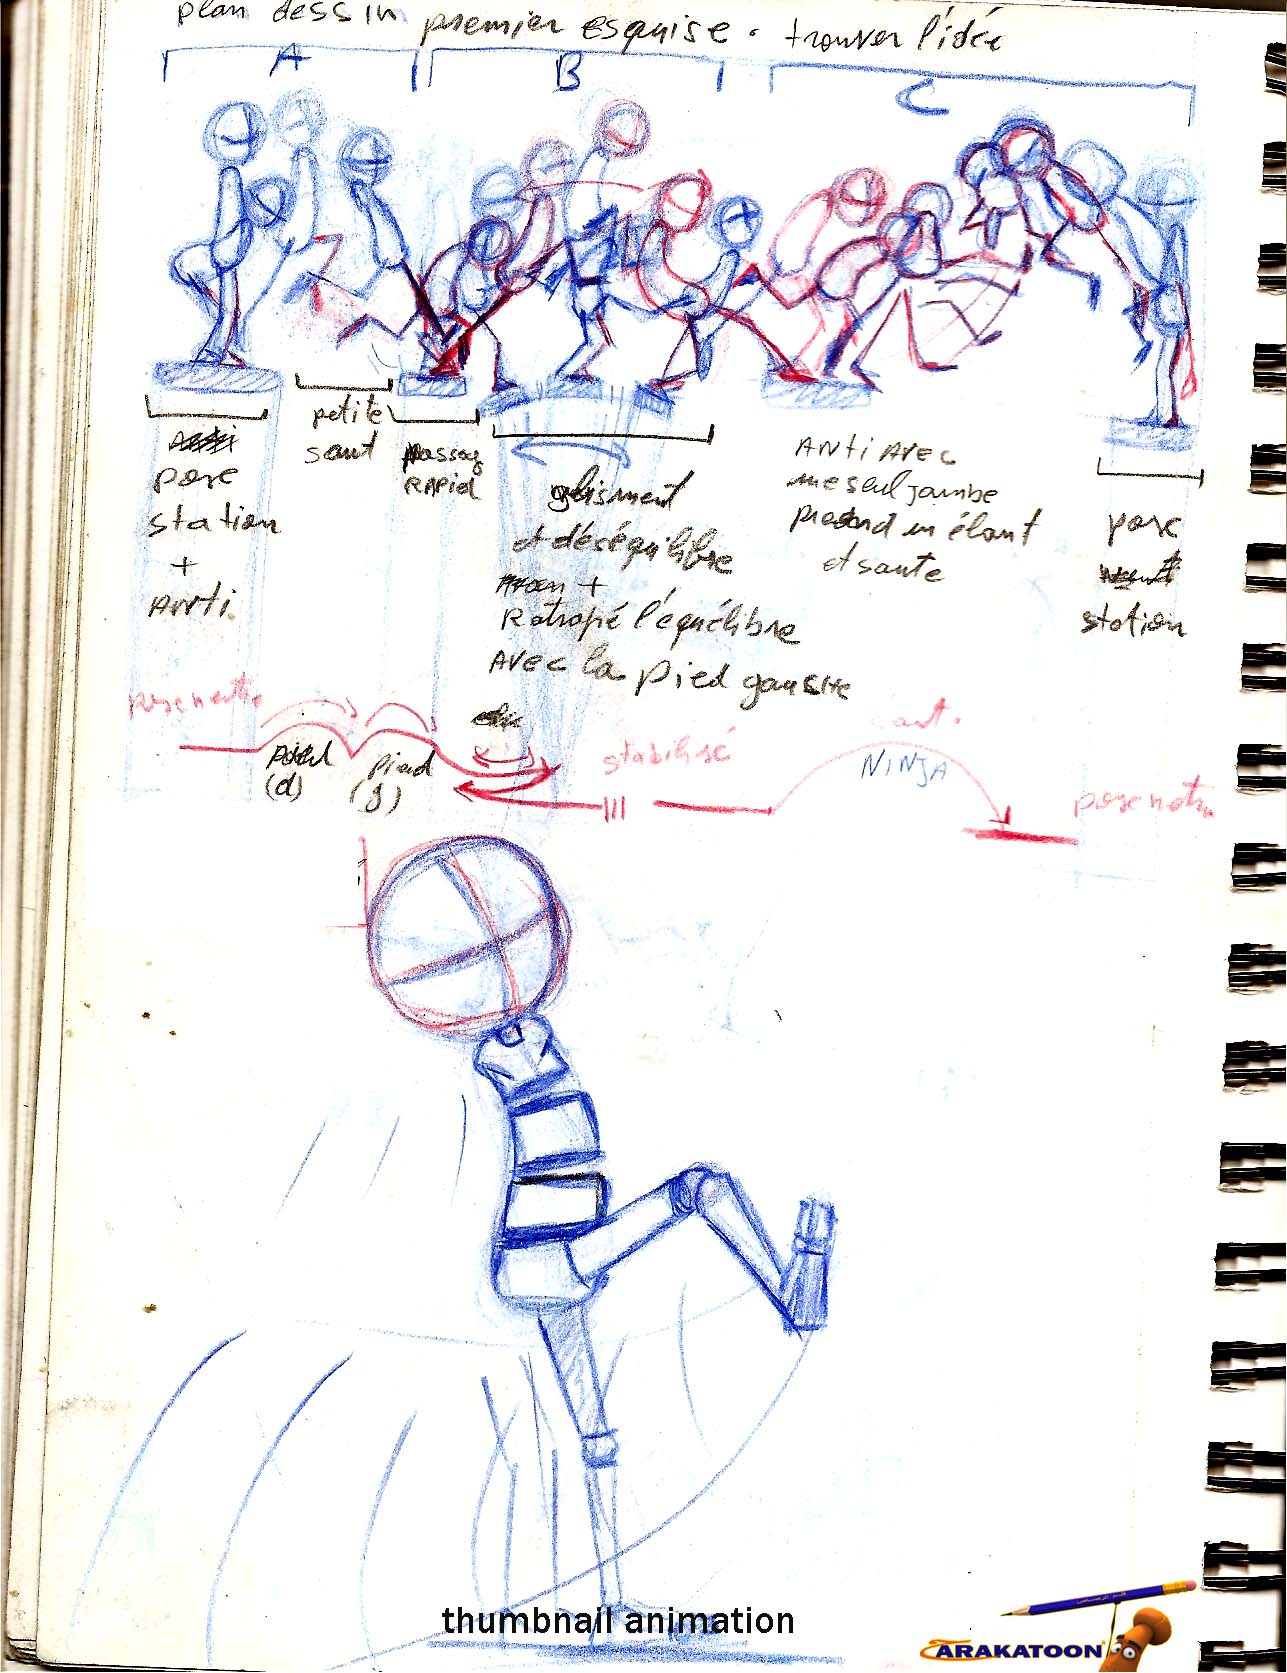 plan dessin premier esquise. trouver l'idée
A
B
C
pose
station
+
Anti.
petite
saut
passag
RAPid
glisment
et déséquilibre
+
Ratrapé l'équélibre
AVEC la pied gaushe
ANTi AVEC
une seul jambe
prend un élant
et saute
pose
station
pose neutre
pied
(d)
pied
(g)
stabilisé
saut.
NINJA
pose notr
thumbnail animation
ARAKATOON